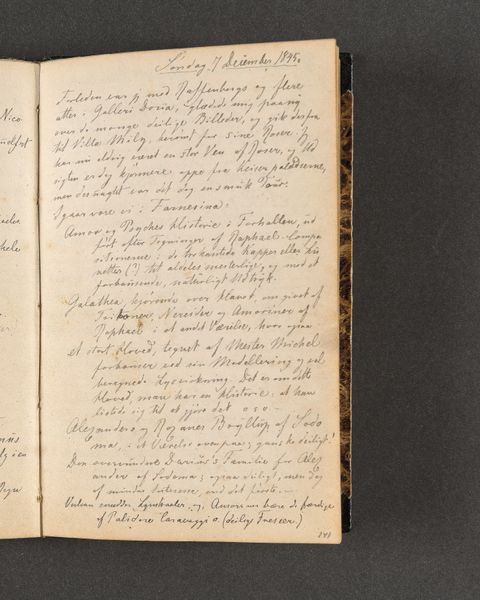 Nico
Søndag 7 December 1845.
Forleden var vi med Raffenbergs og flere
atter i Galleri Doria, glædede mig paany
over de mange deilige Billeder, og gik derfra
til Villa Mily, berømt for sine Roser. Jeg
har nu aldrig været en stor Ven af Roser, og Ud
sigten er dog skjønnere oppe fra Keiserpaladserne,
men desuagtet var det dog en smuk Tour.
Igaar vare vi i Farnesina:
Amor og Psyches Historie i Forhallen, ud
ført efter Tegninger af Raphael. Compo
sitionerne i de trekantede Kapper eller Lu
netter (?) til aldeles mesterlige, og med et
forbausende, naturligt Udtryk.
Galathea, kjørende over Havet, omgivet af
Tritoner, Nereider og Amoriner af
Raphael i et andet Værelse, hvor ogsaa
et stort Hoved, tegnet af Mester Michel
forbauser ved sin Modellering og vel
beregnede Lysvirkning. Det er om dette
Hoved, man har en Historie: at han
listede sig til at gjøre det o s v.
Alexanders og Roxanes Bryllup af Sodo
ma, i et Værelse ovenpaa; ganske deiligt!
Den overvundne Darius's Familie for Alex
ander af Sodoma; ogsaa deiligt, men dog
af mindre Interesse, end det første.
Vulcan smedder og Amorinerne bære de færdige
af Palidoro Caravaggio. (deilige Frescoer)
141